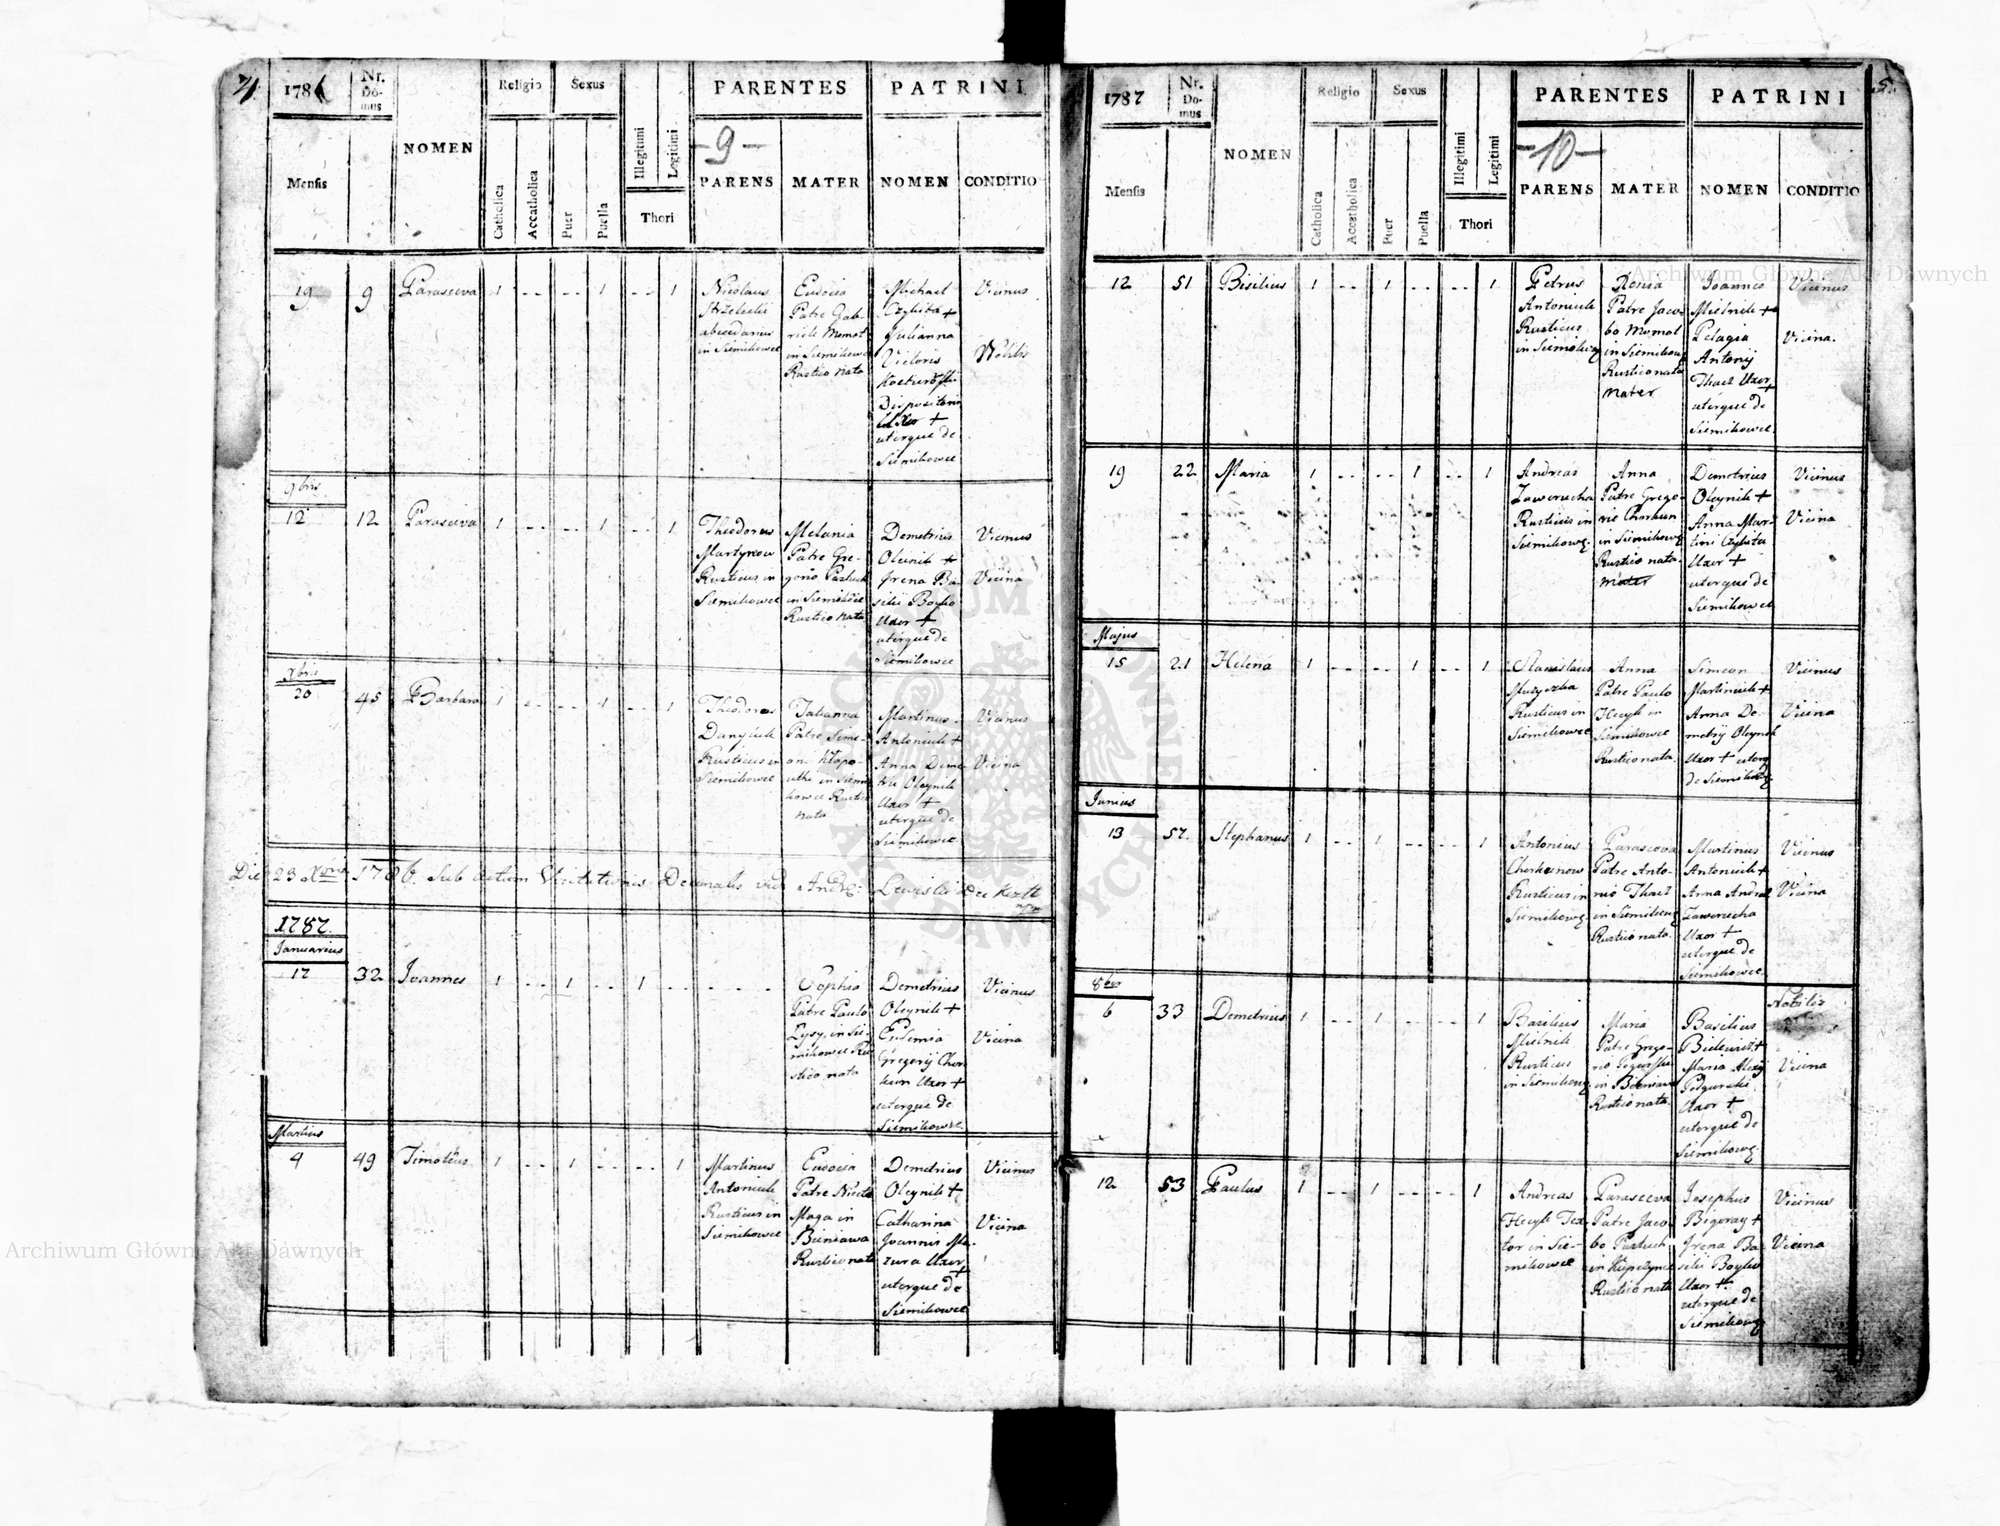 1786
Nr.
Do-
mus
NOMEN
Religio
Sexus
PARENTES
PATRINI
Mensis
Catholica
Accatholica
Puer
Puella
Illegitimi
Legitimi
Thori
-9-
PARENS
MATER
NOMEN
CONDITIO
19
9
Parasceva
1
1
1
Nicolaus
in Siemikowce
Eudocia
Patre Gab-
riele Momot
in Siemikowce
Rustico nata
Michael
Czykita +
Julianna
Victoris
Dispositoris
Uxor +
uterque de
Siemikowce
Vicinus
Nobilis
9bris
12
12
Parasceva
1
1
1
Theodorus
Martynow
Rusticus in
Siemikowce
Melania
Patre Gre-
gorio
in Siemikowce
Rustico nata
Demetrius
Oleinik +
Irena Ba-
silii Boyko
Uxor +
uterque de
Siemikowce
Vicinus
Vicina
Xbris
20
45
Barbara
1
1
1
Theodorus
Danyluk
Rusticus in
Siemikowce
Tatianna
Patre Sime-
one
in Siemi-
kowce Rustico
nata
Martinus
Antoniuk +
Anna Deme-
trii Oleynik
Uxor +
uterque de
Siemikowce
Vicinus
Vicina
Die 23 Xbris 1786. Sub actum Visitationis Decanalis
1787.
Januarius
17
32
Joannes
1
1
1
Sophia
Patre Paulo
Łysy, in Sie-
mikowce Ru-
stico nata
Demetrius
Oleynik +
Eudemia
Gregorij Chor-
kun Uxor +
uterque de
Siemikowce
Vicinus
Vicina
Martius
4
49
Timoteus
1
1
1
Martinus
Antoniuk
Rusticus in
Siemikowce
Eudocia
Patre Niceta
Maga in
Bieniawa
Rustico nata
Demetrius
Oleynik +
Catharina
Joannis Ma-
zura Uxor
+
uterque de
Siemikowce
Vicinus
Vicina
5.
1787
Nr.
Do-
mus
NOMEN
Religio
Sexus
PARENTES
PATRINI
Mensis
Catholica
Accatholica
Puer
Puella
Illegitimi
Legitimi
Thori
-10-
PARENS
MATER
NOMEN
CONDITIO
12
51
Bisilius
1
1
1
Petrus
Antoniuk
Rusticus
in Siemikowce
Xenia
Patre Jaco-
bo Momot
in Siemikowce
Rustico nata
Mater
Joannes
Mielnik +
Pelagia
Antonij
Thacz Uxor
+
uterque de
Siemikowce
Vicinus
Vicina.
19
22
Maria
1
1
1
Andreas
Zawerucha
Rusticus in
Siemikowce
Anna
Patre Grego-
rio Chorkun
in Siemikowce
Rustico nata
Mater
Demetrius
Oleynik +
Anna Mar-
tini Czykita
Uxor +
uterque de
Siemikowce
Vicinus
Vicina
Majus
15
21
Helena
1
1
1
Stanislaus
Muzyczka
Rusticus in
Siemikowce
Anna
Patre Paulo
Hecyk in
Siemikowce
Rustico nata
Simeon
Martiniuk +
Anna De-
metrij Oleynik
Uxor + uterq
de Siemikowce
Vicinus
Vicina
Junius
13
57.
Stephanus
1
1
1
Antonius
Rusticus in
Siemikowce
Parasceva
Patre Anto-
nio Thacz
in Siemikowce
Rustico nata.
Martinus
Antoniuk +
Anna Andreae
Zawerucha
Uxor +
uterque de
Siemikowce
Vicinus
Vicina
8ber
6
33
Demetrius
1
1
1
Basilius
Mielnik
Rusticus
in Siemikowce
Maria
Patre Grego-
rio
in Bieniawa
Rustico nata
Basilius
Bielewicz +
Maria Alexij
Podgurski
Uxor +
uterque de
Siemikowce
Nobilis
Vicina
12
53
Paulus
1
1
1
Andreas
Hecyk Tex-
tor in Sie-
mikowce
Parasceva
Patre Jaco-
bo Pastuch
in
Rustico nata
Josephus
Bigoray +
Irena Ba-
silii Boyko
Uxor +
uterque de
Siemikowce
Vicinus
Vicina
Archiwum Główne Akt Dawnych
Archiwum Główne Akt Dawnych
ARCHIWUM GŁÓWNE AKT DAWNYCH